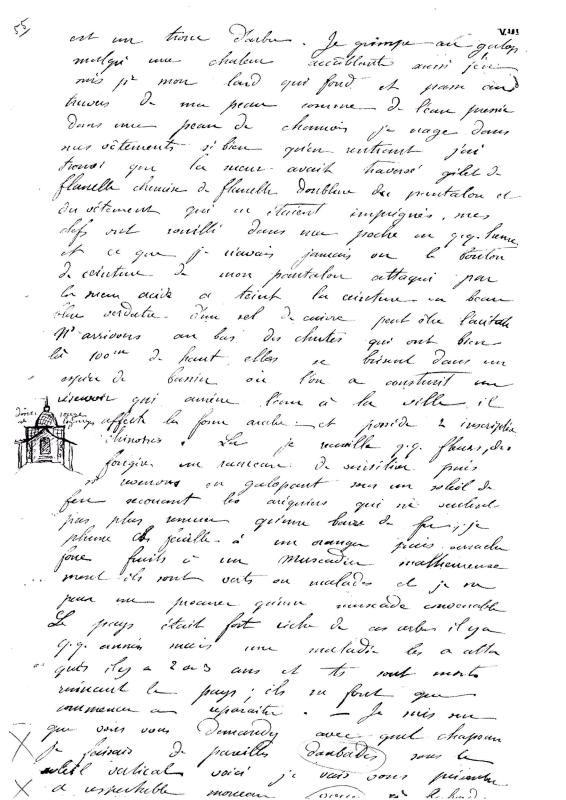 55
est un tronc d'arbre. Je grimpe au galop
malgré une chaleur accablante aussi j'en
mon lard qui fond et passe au
travers de ma peau comme de l'eau pressée
dans une peau de chamois je nage dans
mes vêtements si bien qu'en rentrant j'ai
trouvé que la sueur avait traversé gilet de
flanelle chemise de flanelle doublure du pantalon et
du vêtement qui en étaient imprégnés, mes
clefs ont rouillé dans ma poche en q.q. heures
et ce que je n'avais jamais vu le bouton
de ceinture de mon pantalon attaqué par
la sueur acide a teint la ceinture en beau
bleu verdatre d'un sel de cuivre peut être l'acétate
N. arrivons au bas des chutes qui ont bien
là 100m de haut, elles se brisent dans un
espèce de bassin où l'on a construit un
réservoir qui amène l'eau à la ville, il
dôme rouge
affecte la forme arabe et possède 2 inscriptions
chinoises. Là je recueille q.q. fleurs, des
fougères un rameau de sensitive puis
revenons en galopant sous un soleil de
feu secouant les aréquiers qui ne veulent
pas plus remuer qu'une barre de fer ; je
plume de feuilles à un oranger puis arrache
fruits à un muscadier malheureuse
ment ils sont verts ou malades et je ne
peux me procurer qu'une muscade convenable
Le pays était fort riche de ces arbres il y a
q.q. années mais une maladie les a atta
qués il y a 2 ou 3 ans et ts sont morts
ruinant le pays ; ils ne font que
commencer à reparaitre. — Je suis sur
que vous vous demandez avec quel chapeau
je faisais de pareilles daubades sous le
soleil vertical voici je vais vous présenter
ce respectable morceau